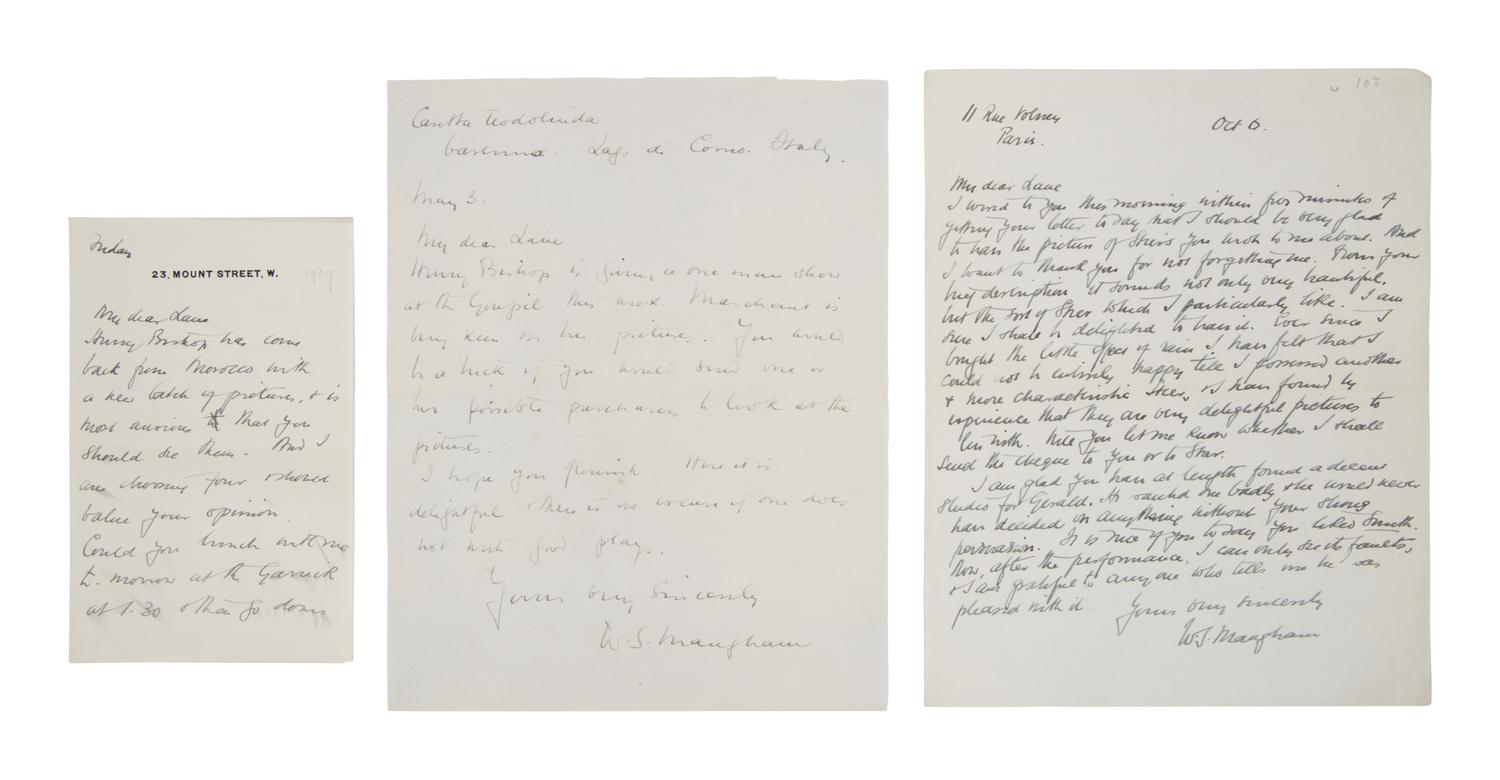 Friday
23, MOUNT STREET, W.
My dear Lane
Harry Bishop has come
back from Morocco with
a new batch of pictures, & is
most anxious that you
should see them. And I
am choosing four & should
value your opinion.
Could you lunch with me
to-morrow at the Garrick
at 1.30 & then go down
Casetta Teodolinda
Varenna. Lago di Como. Italy.
May 3.
My dear Lane
Harry Bishop is giving a one man show
at the Goupil this week. Marchant is
very keen on his pictures. You would
be a brick if you would send one or
two possible purchasers to look at the
pictures.
I hope you flourish. Here it is
delightful & there is no excuse if one does
not write good plays.
Yours very sincerely
W.S. Maugham
11 Rue Volney
Paris.
Oct 6.
My dear Lane
I wired to you this morning within five minutes of
getting your letter to say that I should be very glad
to have the picture of Steer's you wrote to me about. And
I want to thank you for not forgetting me. From your
brief description it sounds not only very beautiful,
but the sort of Steer which I particularly like. I am
sure I shall be delighted to have it. Ever since I
bought the little effect of rain I have felt that I
could not be entirely happy till I possessed another
& more characteristic Steer, & I have found by
experience that they are very delightful pictures to
live with. Will you let me know whether I shall
send the cheque to you or to Steer.
I am glad you have at length found a decent
studio for Gerald. He wanted one badly & he would never
have decided on anything without your strong
persuasion. It is nice of you to say you liked Smith.
Now, after the performance, I can only see its faults,
& I am grateful to anyone who tells me he was
pleased with it.
Yours very sincerely
W.S. Maugham